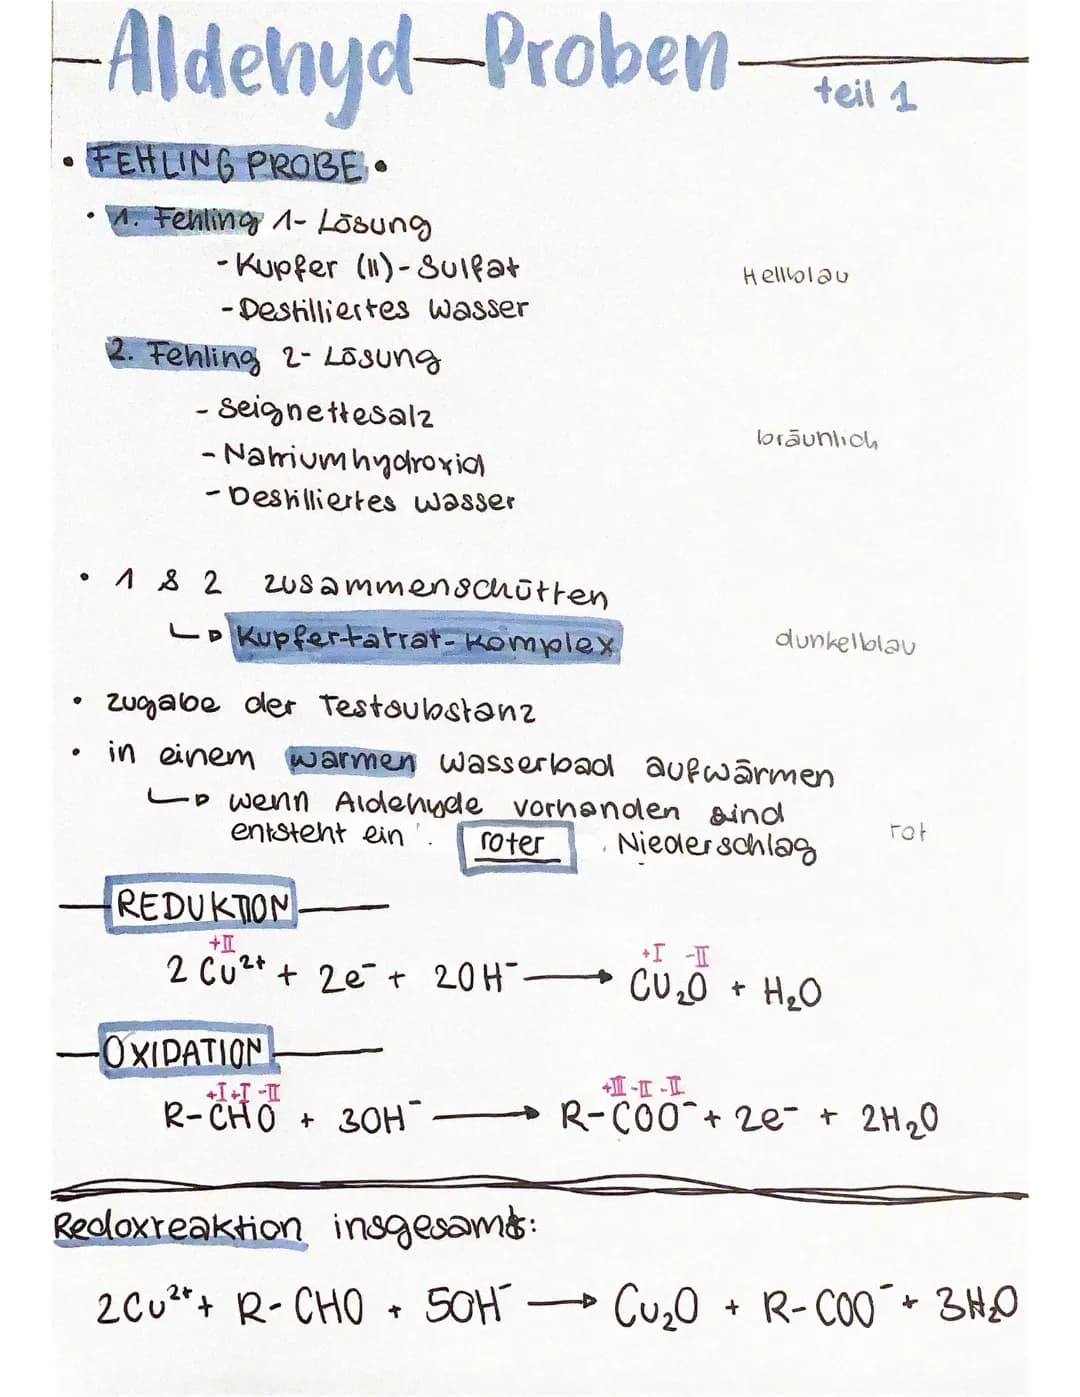 Aldehyd-Proben
teil 1
• FEHLING PROBE •
• 1. Fehling 1-Lösung
- Kupfer (II)-Sulfat
Hellblau
- Destilliertes Wasser
2. Fehling 2-Lösung
- Seignettesalz
bräunlich
- Natriumhydroxid
- Destilliertes Wasser
• 1 & 2 zusammenschütten
↳ Kupfertatrat-Komplex
dunkelblau
• Zugabe der Testsubstanz
• in einem warmen Wasserbad aufwärmen
↳ wenn Aldehyde vorhanden sind
entsteht ein roter Niederschlag
rot
REDUKTION
+II +I -II
2 Cu²⁺ + 2e⁻ + 2OH⁻ → Cu₂O + H₂O
OXIDATION
+I +I -II +III -II -II
R-CHO + 3OH⁻ → R-COO⁻ + 2e⁻ + 2H₂O
Redoxreaktion insgesamt:
2Cu²⁺ + R-CHO + 5OH⁻ → Cu₂O + R-COO⁻ + 3H₂O